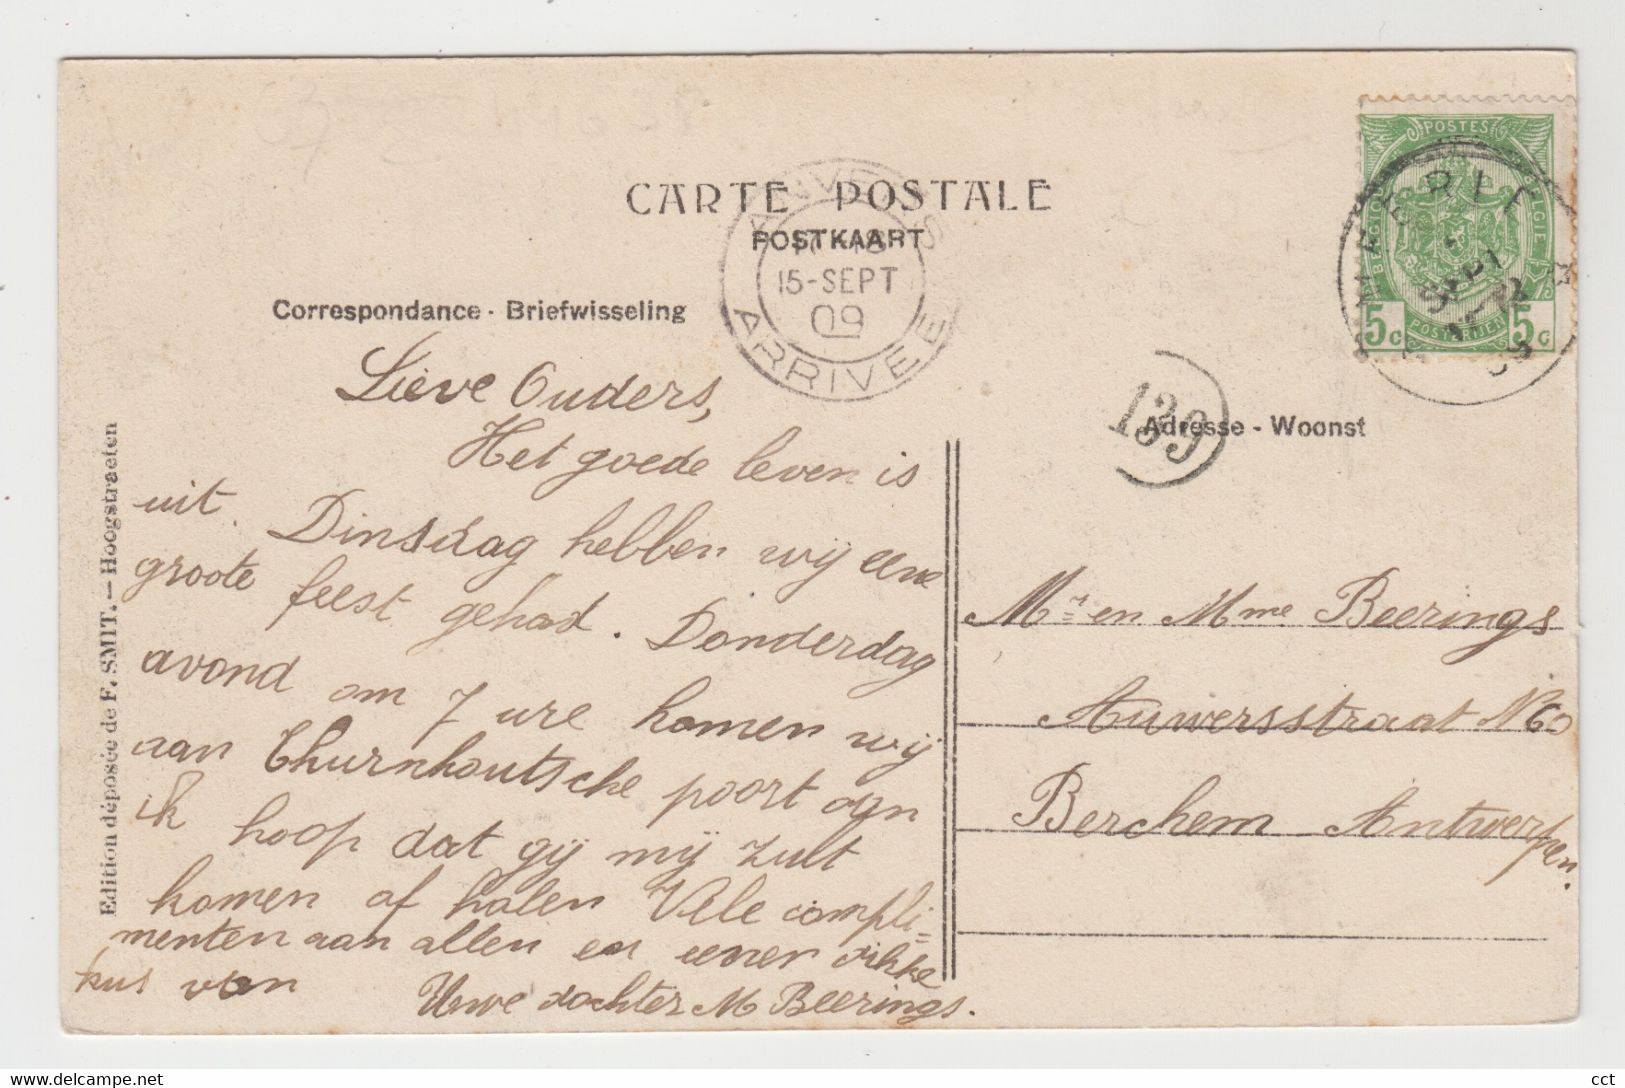 CARTE POSTALE
POSTKAART
Correspondance - Briefwisseling
ANVERS
15-SEPT
09
ARRIVEE
POSTES
BELGIQUE
BELGIE
5c
POSTERIJEN
5c
139
Adresse - Woonst
Edition déposée de F. SMIT. — Hoogstraeten
Lieve Ouders,
Het goede leven is
uit. Dinsdag hebben wij eene
groote feest gehad. Donderdag
avond om 7 ure komen wij
aan Thurnhoutsche poort aan
ik hoop dat gij mij zult
komen af halen Vele compli-
menten aan allen en eenen dikke
kus van Uwe dochter M Beerings.
Mr en Mme Beerings
Auwersstraat
Berchem Antwerpen.
cct